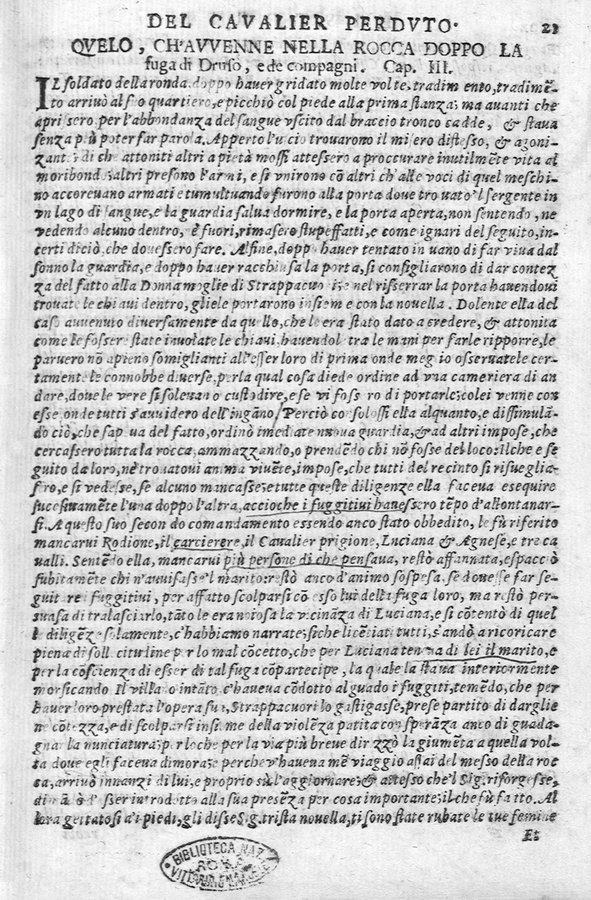 DEL CAVALIER PERDVTO. 23
QVELO, CH'AVVENNE NELLA ROCCA DOPPO LA
fuga di Druso, e de compagni. Cap. III.
IL soldato della ronda doppo hauer gridato molte volte, tradimento, tradimẽ-
to arriuò al suo quartiero, e picchiò col piede alla prima stanza; ma auanti che
aprissero per l'abbondanza del sangue vscito dal braccio tronco cadde, & staua
senza più poter far parola. Apperto l'vscio trouarono il misero disteso, & agoni-
zante; di che attoniti altri a pietà mossi attessero a proccurare inutilmẽte vita al
moribondo; altri presono l'armi, e si vnirono cõ altri ch'alle voci di quel meschi-
no accoreuano armati e tumultuando furono alla porta doue trouato'l sergente in
vn lago di sangue, e la guardia salua dormire, e la porta aperta, non sentendo, ne
vedendo alcuno dentro, è fuori, rimasero stupeffatti, e come ignari del seguito, in-
certi di ciò, che douessero fare. Alfine, doppo hauer tentato in uano di far viua dal
sonno la guardia, e doppo hauer racchiusa la porta, si consigliarono di dar contez
za del fatto alla Donna moglie di Strappacuori; e nel risserrar la porta hauendoui
trouate le chiaui dentro, gliele portarono insieme con la nouella. Dolente ella del
caso auuenuto diuersamente da quello, che le era stato dato a credere, & attonita
come le fossero state inuolate le chiaui, hauendol tra le mani per farle ripporre, le
paruero nõ apieno somiglianti all'esser loro di prima onde meglio osseruatele cer-
tamente le connobbe diuerse, per la qual cosa diede ordine ad vna cameriera di an
dare, doue le vere si soleuano custodire, e se vi fossero di portarle; colei venne con
esse onde tutti s'auuidero dell'ingãno. Perciò consolossi ella alquanto, e dissimulã-
do ciò, che sapeua del fatto, ordinò imediate nuoua guardia, & ad altri impose, che
cercassero tutta la rocca, ammazzando, o prendẽdo chi nõ fosse del loco: ilche e se
guito da loro, nè trouatoui anima viuẽte, impose, che tutti del recinto si risueglia-
ssero, e si vedesse, se alcuno mancasse; e tutte queste diligenze ella faceua esequire
sucessiuamẽte l'una doppo l'altra, accioche i fuggitiui hauessero tẽpo d'allontanar-
si. A questo suo secondo comandamento essendo anco stato obbedito, le fù riferito
mancarui Rodione, il carcierere, il Caualier prigione, Luciana & Agnese, e tre ca
ualli. Sentẽdo ella, mancarui più persone di che pensaua, restò affannata, e spacciò
subitamẽte chi n'auuisasse'l marito: restò anco d'animo sospesa, se douesse far se-
guitare i fuggitiui, per affatto scolparsi con esso lui della fuga loro, ma restò per-
suasa di tralasciarlo, tãto le era noiosa la vicinãza di Luciana, e si cõtentò di quel
le diligẽze solamente, c'habbiamo narrate; siche licẽtiati tutti, s'andò a ricoricare
piena di sollecitudine per lo mal cõcetto, che per Luciana teneua di lei il marito, e
per la cõscienza di esser di tal fuga cõpartecipe, la quale la staua interiormente
morsicando Il villano intãto c'haueua cõdotto al guado i fuggiti, temẽdo, che per
hauer loro prestata l'opera sua, Strappacuori lo gastigasse, prese partito di darglie
ne cõtezza, e di scolparsi insieme della violẽza patita con sperãza anco di guada-
gnar la nunciatura; per loche per la via più breue dirizzò la giumẽta a quella vol-
ta doue egli faceua dimora; e perche v'haueua mẽ viaggio assai del messo della roc
ca, arriuò innanzi di lui, e proprio sù l'aggiornare; & attesso che'l Sig. risorgesse,
dimãdò d'esser introdotto alla sua presẽza per cosa importante; il che fù fatto. Al
lora gettatosi a i piedi, gli disse Sig. trista nouella, ti sono state rubate le tue femine
Et
BIBLIOTECA NAZ
ROMA
VITTORIO EMANUELE